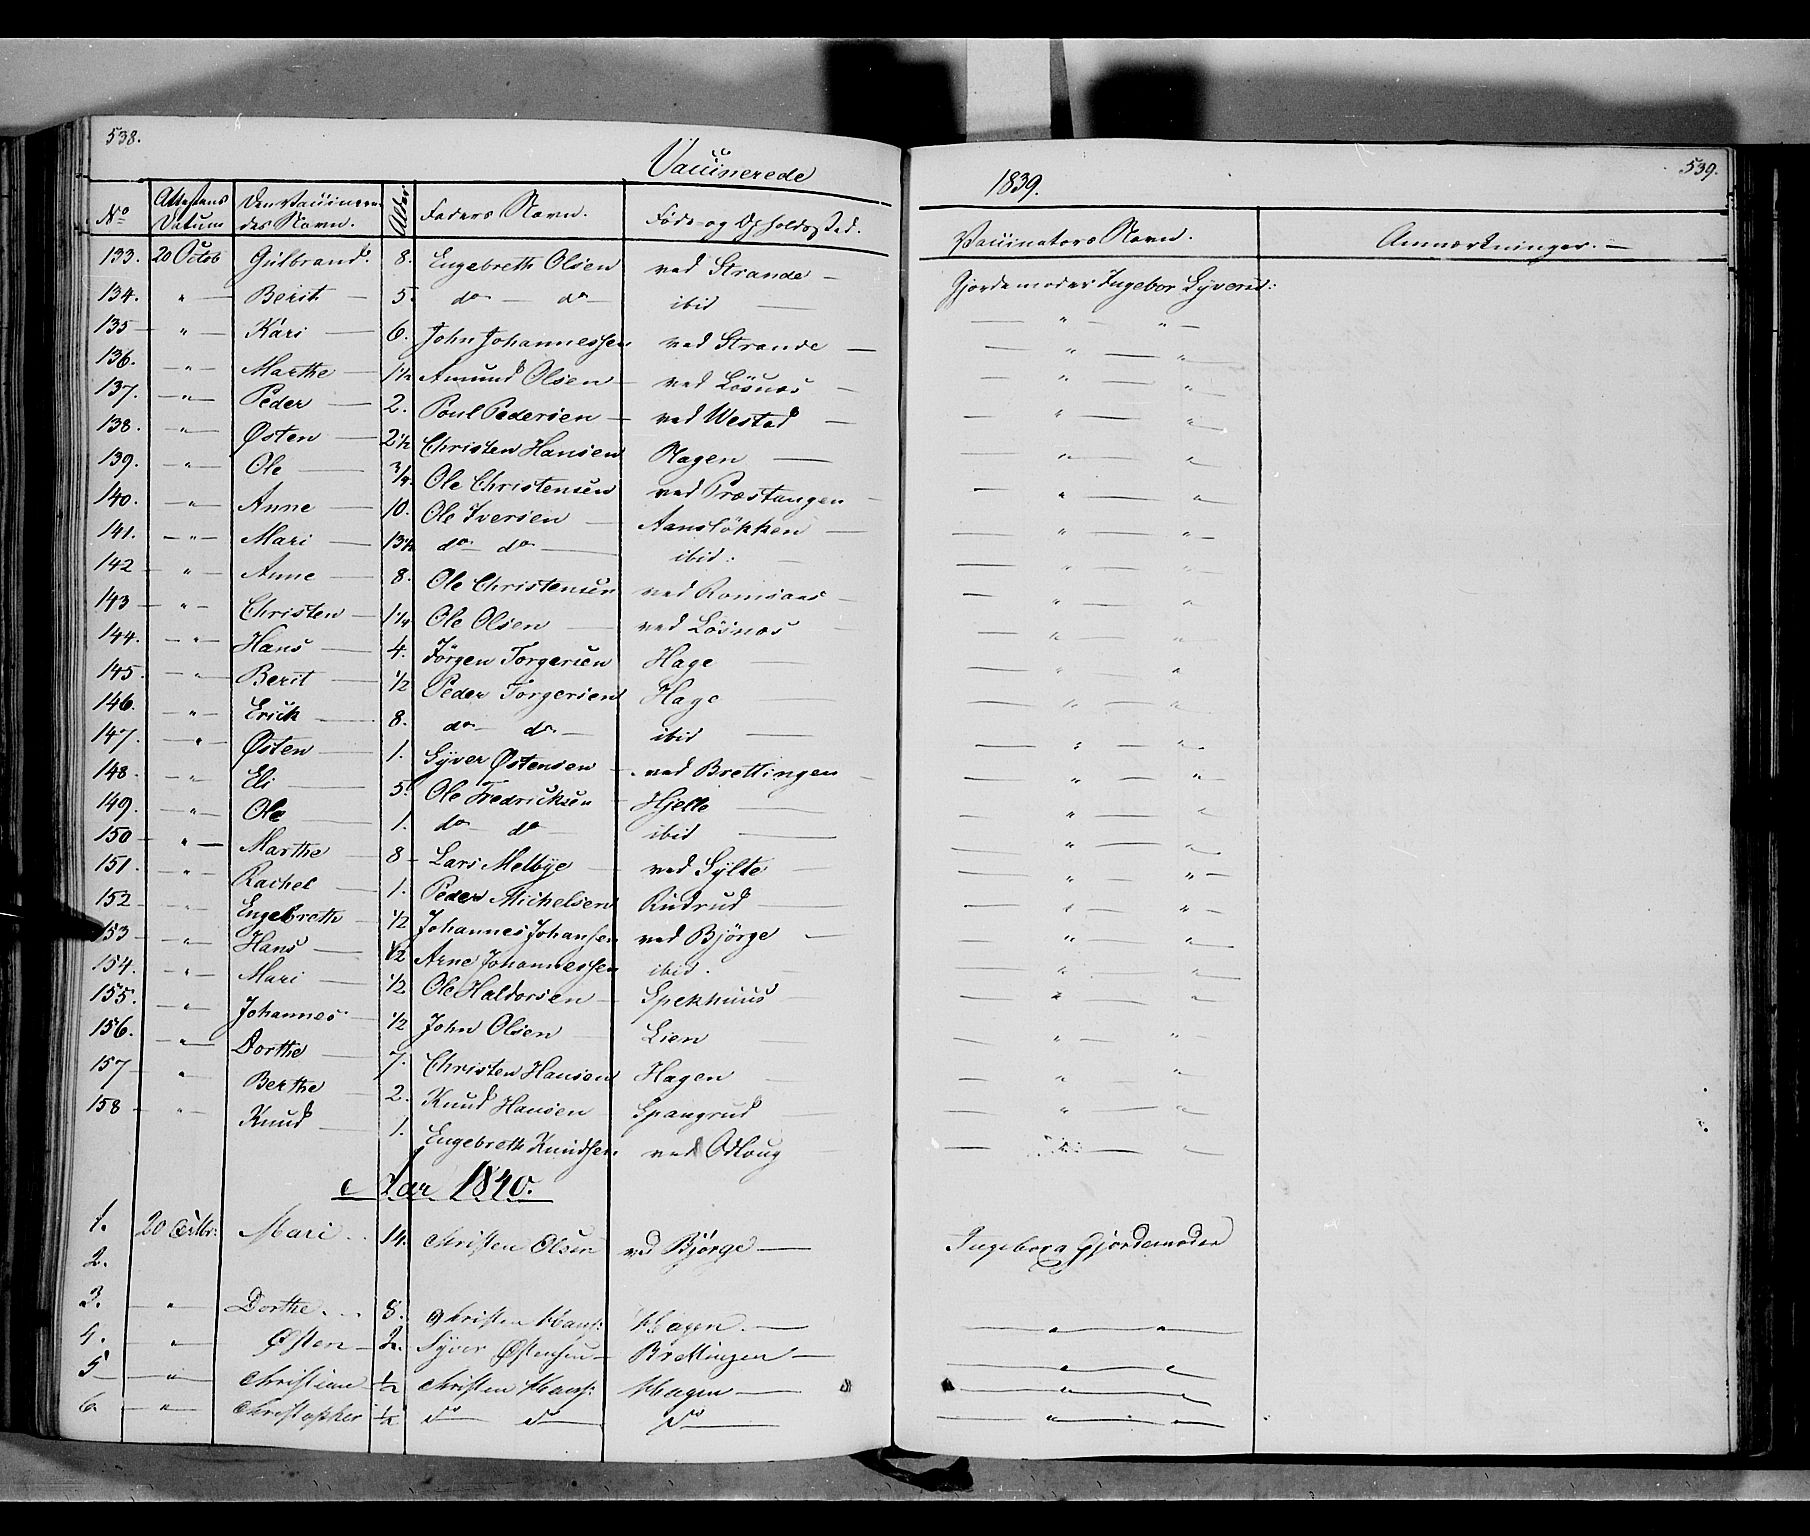 538.
Vaccinerede
No Attestens Datum Den Vaccineredes Navn. Alder Faders Navn. Føde- og Opholdssted.
133. 20 Octob Gulbrand. 8. Engebreth Olsen ved Strande —
134. " — Berit — 5. do do ibid —
135 — " — Kari — 6. John Johannessen ved Strande —
136. — " — Marthe — 1½ Amund Olsen — ved Løsnæs —
137. — " — Peder — 2. Poul Pedersen — ved Westad —
138. — " — Østen — 2½ Christen Hansen Hagen —
139. — " — Ole — 3/4. Ole Christensen ved Præstangen —
140. — " — Anne — 10. Ole Iversen — Aansløkken —
141. — " — Mari — 13½ do do — ibid. —
142 — " — Anne — 8. Ole Christensen ved Romsaas —
143 — " — Christen — 1¼ Ole Olsen — ved Løsnæs —
144. — " — Hans — 4. Jørgen Torgersen Hage —
145. — " — Berit — 1/2 Peder Torgersen Hage —
146. " — Erick — 8. do do — ibid —
147. — " — Østen — 1. Syver Østensen — ved Brettingen —
148. — " — Eli — 5. Ole Fredricksen — Hjelle —
149. — " — Ole — 1. do do ibid —
150 — " — Marthe — 8 — Lars Melbye — ved Sylte —
151. — " — Rachel — 1. Peder Michelsen Rudrud —
152 — " — Engebreth — 1/2 Johannes Johansen ved Bjørge —
153 — " — Hans — 1/2 Arne Johannessen ibid. —
154. — " — Mari — 1/2 Ole Haldorsen — Spekhuus —
155. — " — Johannes — 1/2 John Olsen — Lien —
156. — " — Dorthe — 7. Christen Hansen Hagen —
157 — " — Berthe — 2. Knud Hansen Spangrud
158 — " — Knud — 1. Engebreth Knudsen ved Odloug —
Aar 1840.
1. 20 Mari 14. Christen Olsen ved Bjørge —
2.
3. — " — Dorthe 8. Christen Hans: Hagen —
4. — " — Østen — 2. Syver Østensen — Brettingen —
5 — " — Christian 1/2 Christen Hans: Hagen —
6. — " — Christopher 1/2 do do do
539.
1839.
Vaccinators Navn. Anmærkninger. —
Gjordemoder Ingebor Syvers:
Ingeborg Gjordemoder